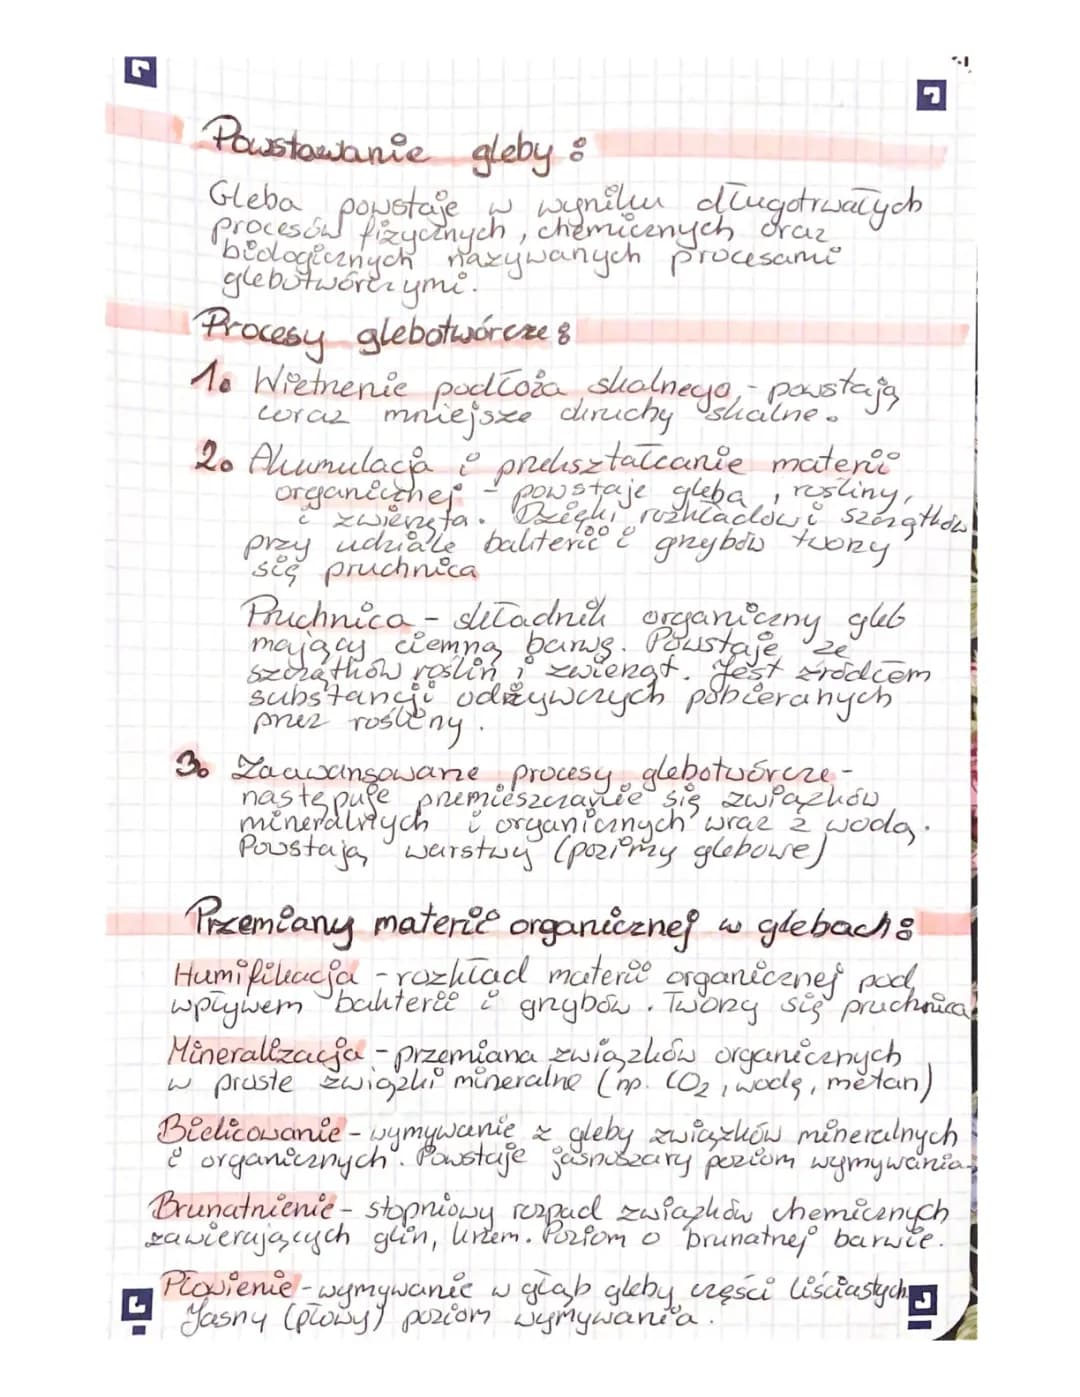 Powstawanie gleby:
Gleba powstaje w wyniku długotrwałych
procesów fizycznych, chemicznych oraz
biologicznych nazywanych procesami
glebotwórczymi.
Procesy glebotwórcze:
1. Wietrzenie podłoża skalnego - powstają
coraz mniejsze okruchy skalne.
2. Akumulacja i przekształcanie materii
organicznej - powstaje gleba, rośliny,
i zwierzęta. Dzięki rozkładowi szczątków
przy udziale bakterii i grzybów tworzy
się pruchnica
Pruchnica - składnik organiczny gleb
mający ciemną barwę. Powstaje ze
szczątków roślin i zwierząt. Jest źródłem
substancji odżywczych pobieranych
przez rośliny.
3. Zaawansowane procesy glebotwórcze -
następuje przemieszczanie się związków
mineralnych i organicznych wraz z wodą.
Powstają warstwy (poziomy glebowe)
Przemiany materii organicznej w glebach:
Humifikacja - rozkład materii organicznej pod
wpływem bakterii i grzybów. Tworzy się pruchnica
Mineralizacja - przemiana związków organicznych
w proste związki mineralne (np. CO2, wodę, metan)
Bielicowanie - wymywanie z gleby związków mineralnych
i organicznych. Powstaje jasnoszary poziom wymywania
Brunatnienie - stopniowy rozpad związków chemicznych
zawierających glin, krzem. Poziom o brunatnej barwie.
Płowienie - wymywanie w głąb gleby części liściastych.
Jasny (płowy) poziom wymywania.